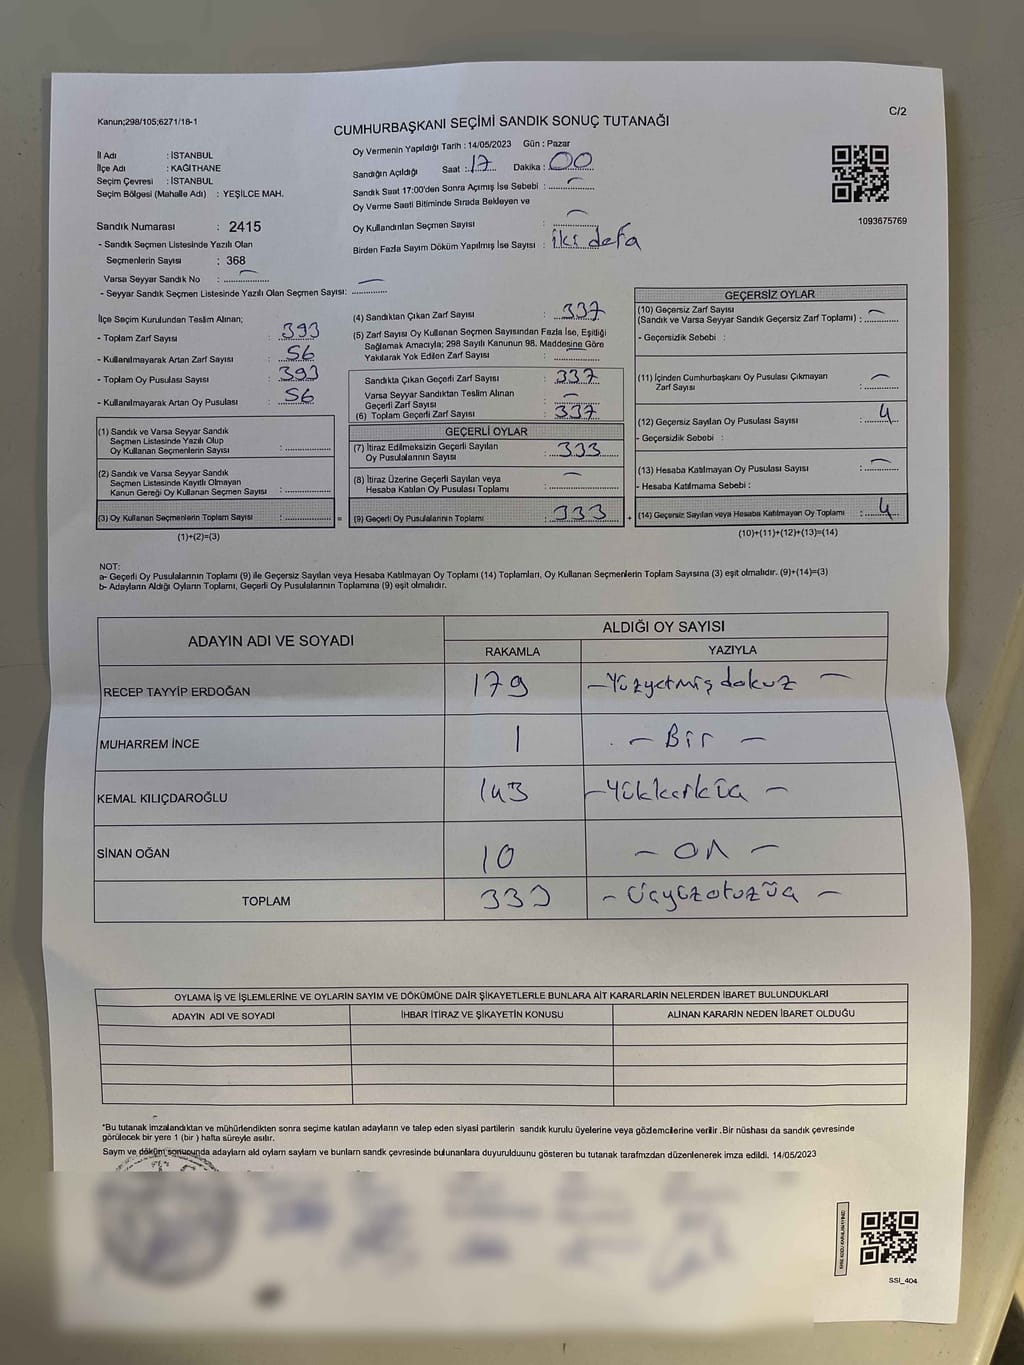 Kanun;298/105;6271/18-1
C/2
CUMHURBAŞKANI SEÇİMİ SANDIK SONUÇ TUTANAĞI
İl Adı : İSTANBUL
İlçe Adı : KAĞITHANE
Seçim Çevresi : İSTANBUL
Seçim Bölgesi (Mahalle Adı) : YEŞİLCE MAH.
Sandık Numarası : 2415
- Sandık Seçmen Listesinde Yazılı Olan
Seçmenlerin Sayısı : 368
Varsa Seyyar Sandık No :
- Seyyar Sandık Seçmen Listesinde Yazılı Olan Seçmen Sayısı:
Oy Vermenin Yapıldığı Tarih : 14/05/2023 Gün : Pazar
Sandığın Açıldığı Saat : 17 Dakika : 00
Sandık Saat 17:00'den Sonra Açımış İse Sebebi :
Oy Verme Saati Bitiminde Sırada Bekleyen ve
Oy Kullandırılan Seçmen Sayısı :
Birden Fazla Sayım Döküm Yapılmış İse Sayısı : iki defa
1093675769
İlçe Seçim Kurulundan Teslim Alınan;
- Toplam Zarf Sayısı : 393
- Kullanılmayarak Artan Zarf Sayısı : 56
- Toplam Oy Pusulası Sayısı : 393
- Kullanılmayarak Artan Oy Pusulası : 56
(1) Sandık ve Varsa Seyyar Sandık
Seçmen Listesinde Yazılı Olup
Oy Kullanan Seçmenlerin Sayısı :
(2) Sandık ve Varsa Seyyar Sandık
Seçmen Listesinde Kayıtlı Olmayan
Kanun Gereği Oy Kullanan Seçmen Sayısı :
(3) Oy Kullanan Seçmenlerin Toplam Sayısı : =
(1)+(2)=(3)
(4) Sandıktan Çıkan Zarf Sayısı : 337
(5) Zarf Sayısı Oy Kullanan Seçmen Sayısından Fazla İse, Eşitliği
Sağlamak Amacıyla; 298 Sayılı Kanunun 98. Maddesine Göre
Yakılarak Yok Edilen Zarf Sayısı :
Sandıkta Çıkan Geçerli Zarf Sayısı : 337
Varsa Seyyar Sandıktan Teslim Alınan
Geçerli Zarf Sayısı :
(6) Toplam Geçerli Zarf Sayısı : 337
GEÇERLİ OYLAR
(7) İtiraz Edilmeksizin Geçerli Sayılan
Oy Pusulalarının Sayısı : 333
(8) İtiraz Üzerine Geçerli Sayılan veya
Hesaba Katılan Oy Pusulası Toplamı :
(9) Geçerli Oy Pusulalarının Toplamı : 333 +
GEÇERSİZ OYLAR
(10) Geçersiz Zarf Sayısı
(Sandık ve Varsa Seyyar Sandık Geçersiz Zarf Toplamı) :
- Geçersizlik Sebebi :
(11) İçinden Cumhurbaşkanı Oy Pusulası Çıkmayan
Zarf Sayısı :
(12) Geçersiz Sayılan Oy Pusulası Sayısı : 4
- Geçersizlik Sebebi :
(13) Hesaba Katılmayan Oy Pusulası Sayısı :
- Hesaba Katılmama Sebebi :
(14) Geçersiz Sayılan veya Hesaba Katılmayan Oy Toplamı : 4
(10)+(11)+(12)+(13)=(14)
NOT:
a- Geçerli Oy Pusulalarının Toplamı (9) ile Geçersiz Sayılan veya Hesaba Katılmayan Oy Toplamı (14) Toplamları, Oy Kullanan Seçmenlerin Toplam Sayısına (3) eşit olmalıdır. (9)+(14)=(3)
b- Adayların Aldığı Oyların Toplamı, Geçerli Oy Pusulalarının Toplamına (9) eşit olmalıdır.
ADAYIN ADI VE SOYADI ALDIĞI OY SAYISI
RAKAMLA YAZIYLA
RECEP TAYYİP ERDOĞAN 179 - Yüzyetmiş dokuz -
MUHARREM İNCE 1 - Bir -
KEMAL KILIÇDAROĞLU 143
SİNAN OĞAN 10 - on -
TOPLAM 333 - Üçyüzotuzüç -
OYLAMA İŞ VE İŞLEMLERİNE VE OYLARIN SAYIM VE DÖKÜMÜNE DAİR ŞİKAYETLERLE BUNLARA AİT KARARLARIN NELERDEN İBARET BULUNDUKLARI
ADAYIN ADI VE SOYADI İHBAR İTİRAZ VE ŞİKAYETİN KONUSU ALINAN KARARIN NEDEN İBARET OLDUĞU
*Bu tutanak imzalandıktan ve mühürlendikten sonra seçime katılan adayların ve talep eden siyasi partilerin sandık kurulu üyelerine veya gözlemcilerine verilir .Bir nüshası da sandık çevresinde
görülecek bir yere 1 (bir ) hafta süreyle asılır.
Saym ve döküm sonucunda adaylarn ald oylarn saylarn ve bunlarn sandk çevresinde bulunanlara duyurulduunu gösteren bu tutanak tarafmzdan düzenlenerek imza edildi. 14/05/2023
SSI_404